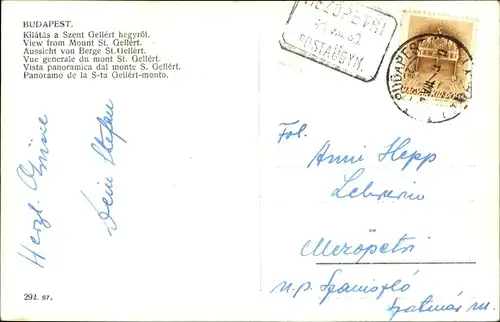 BUDAPEST.
Kilátás a Szent Gellért hegyről.
View from Mount St. Gellért.
Aussicht von Berge St. Gellért.
Vue generale du mont St. Gellért.
Vista panoramica dal monte S. Gellért.
Panoramo de la S-ta Gellért-monto.
Herzl. Grüsse
Dein Stefan
292. sr.
MEZŐPETRI
POSTAÜGYN.
BUDAPEST
MAGYAR KIR. POSTA
Frl.
Anni Hepp
Lehrerin
Mezőpetri
u. p. Szaniszló
Szatmár m.